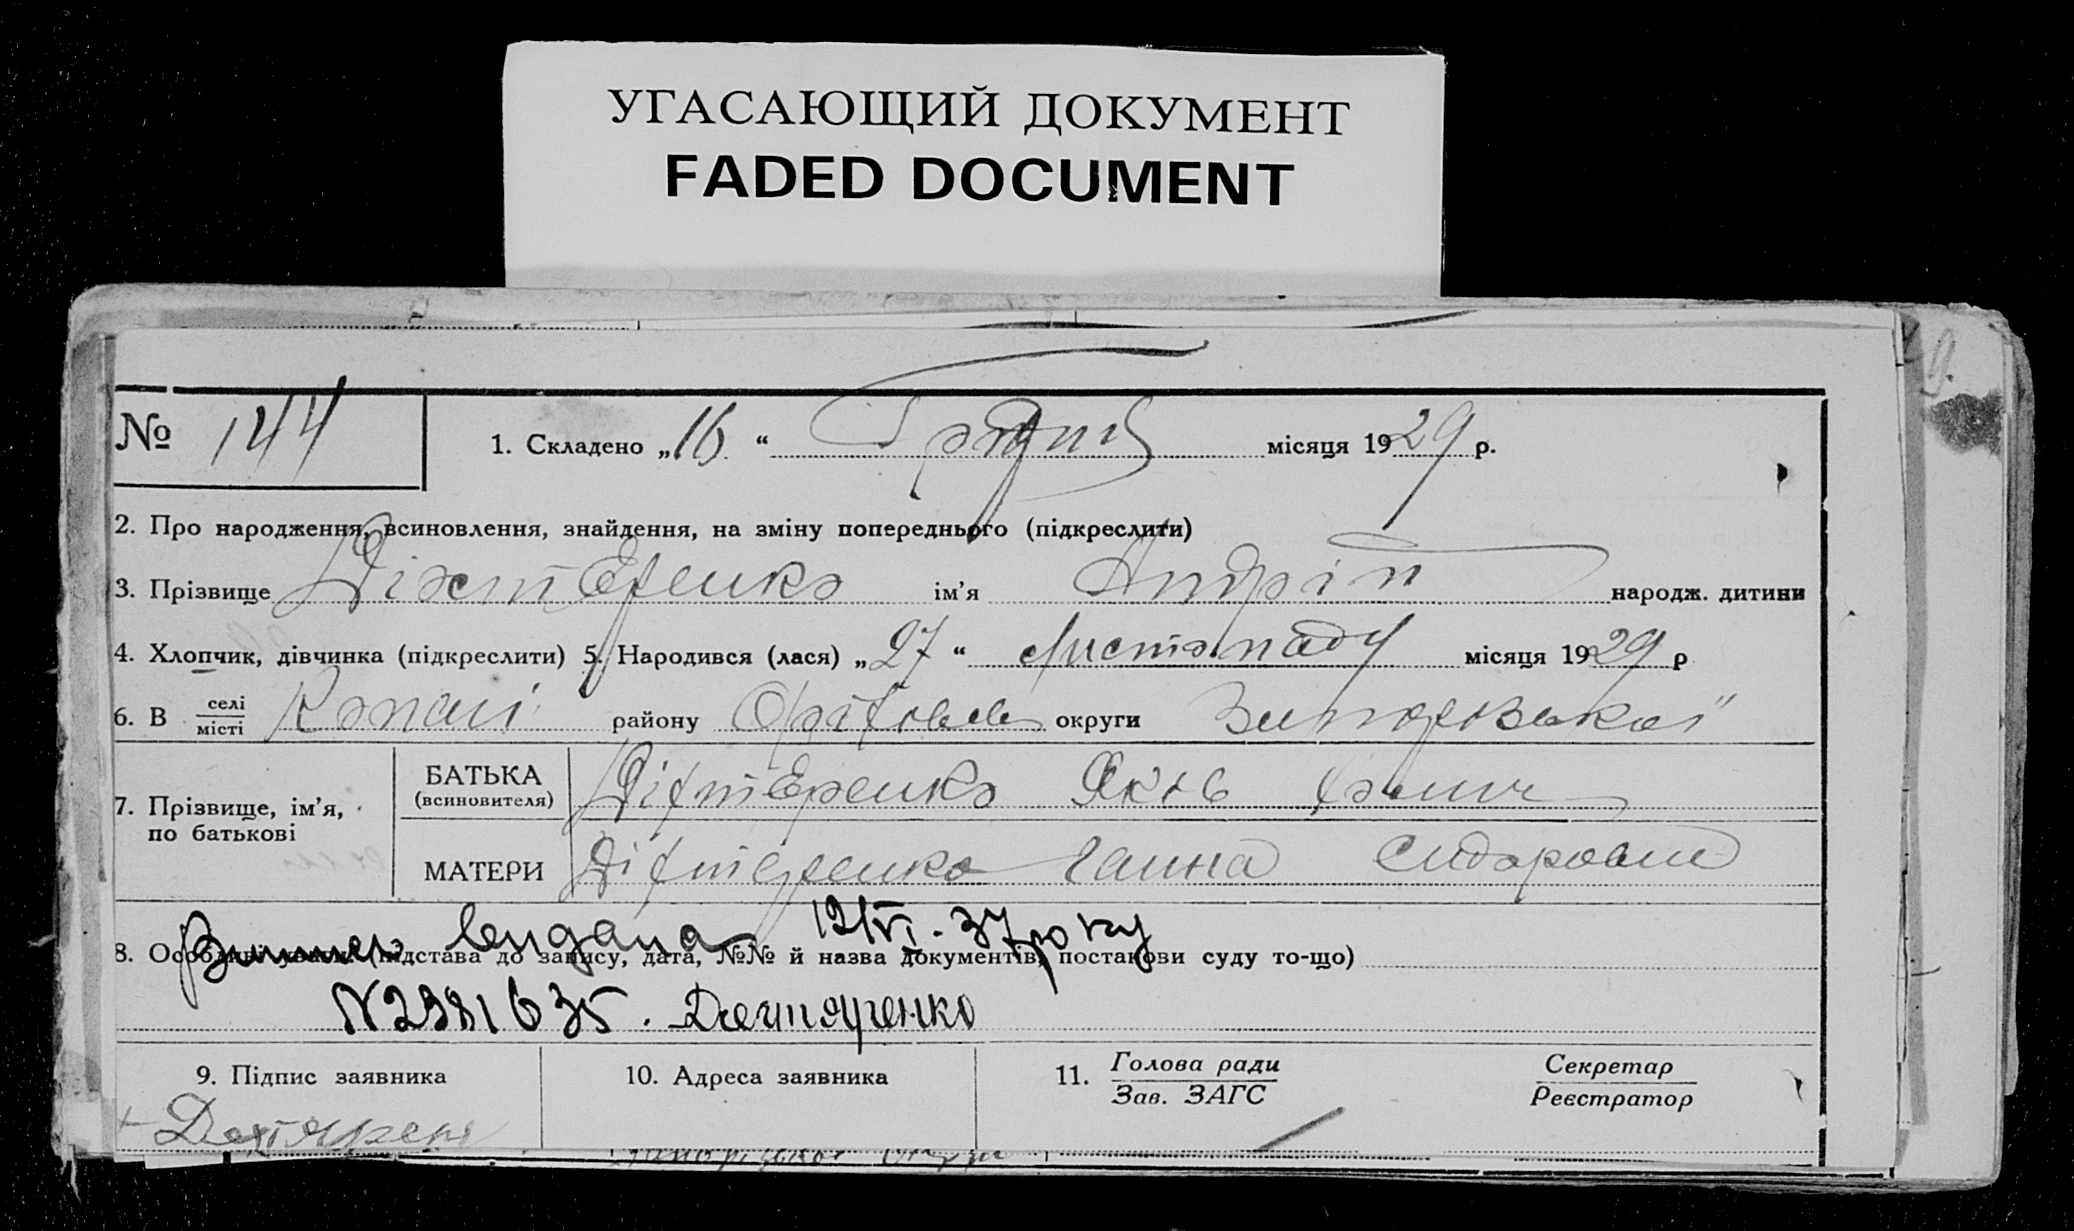 УГАСАЮЩИЙ ДОКУМЕНТ
FADED DOCUMENT
№ 144
1. Складено „16“ Грудня місяця 1929 р.
2. Про народження, всиновлення, знайдення, на зміну попереднього (підкреслити)
3. Прізвище Діхтеренко ім’я Андрій народж. дитини
4. Хлопчик, дівчинка (підкреслити) 5. Народився (лася) „27“ Листопаду місяця 1929 р
6. В селі/місті Копані району Оріхівсько округи Запорізької
7. Прізвище, ім’я, по батькові
БАТЬКА (всиновителя) Діхтеренко Яків
МАТЕРИ Діхтеренко Ганна Сидоровна
8. Особливі уваги (підстава до запису, дата, №№ й назва документів, постанови суду то-що)
видана 12/VI.-37 року
N2981635. Дехтяренко
9. Підпис заявника
10. Адреса заявника
11. Голова ради / Зав. ЗАГС
Секретар / Реєстратор
Дехтярен